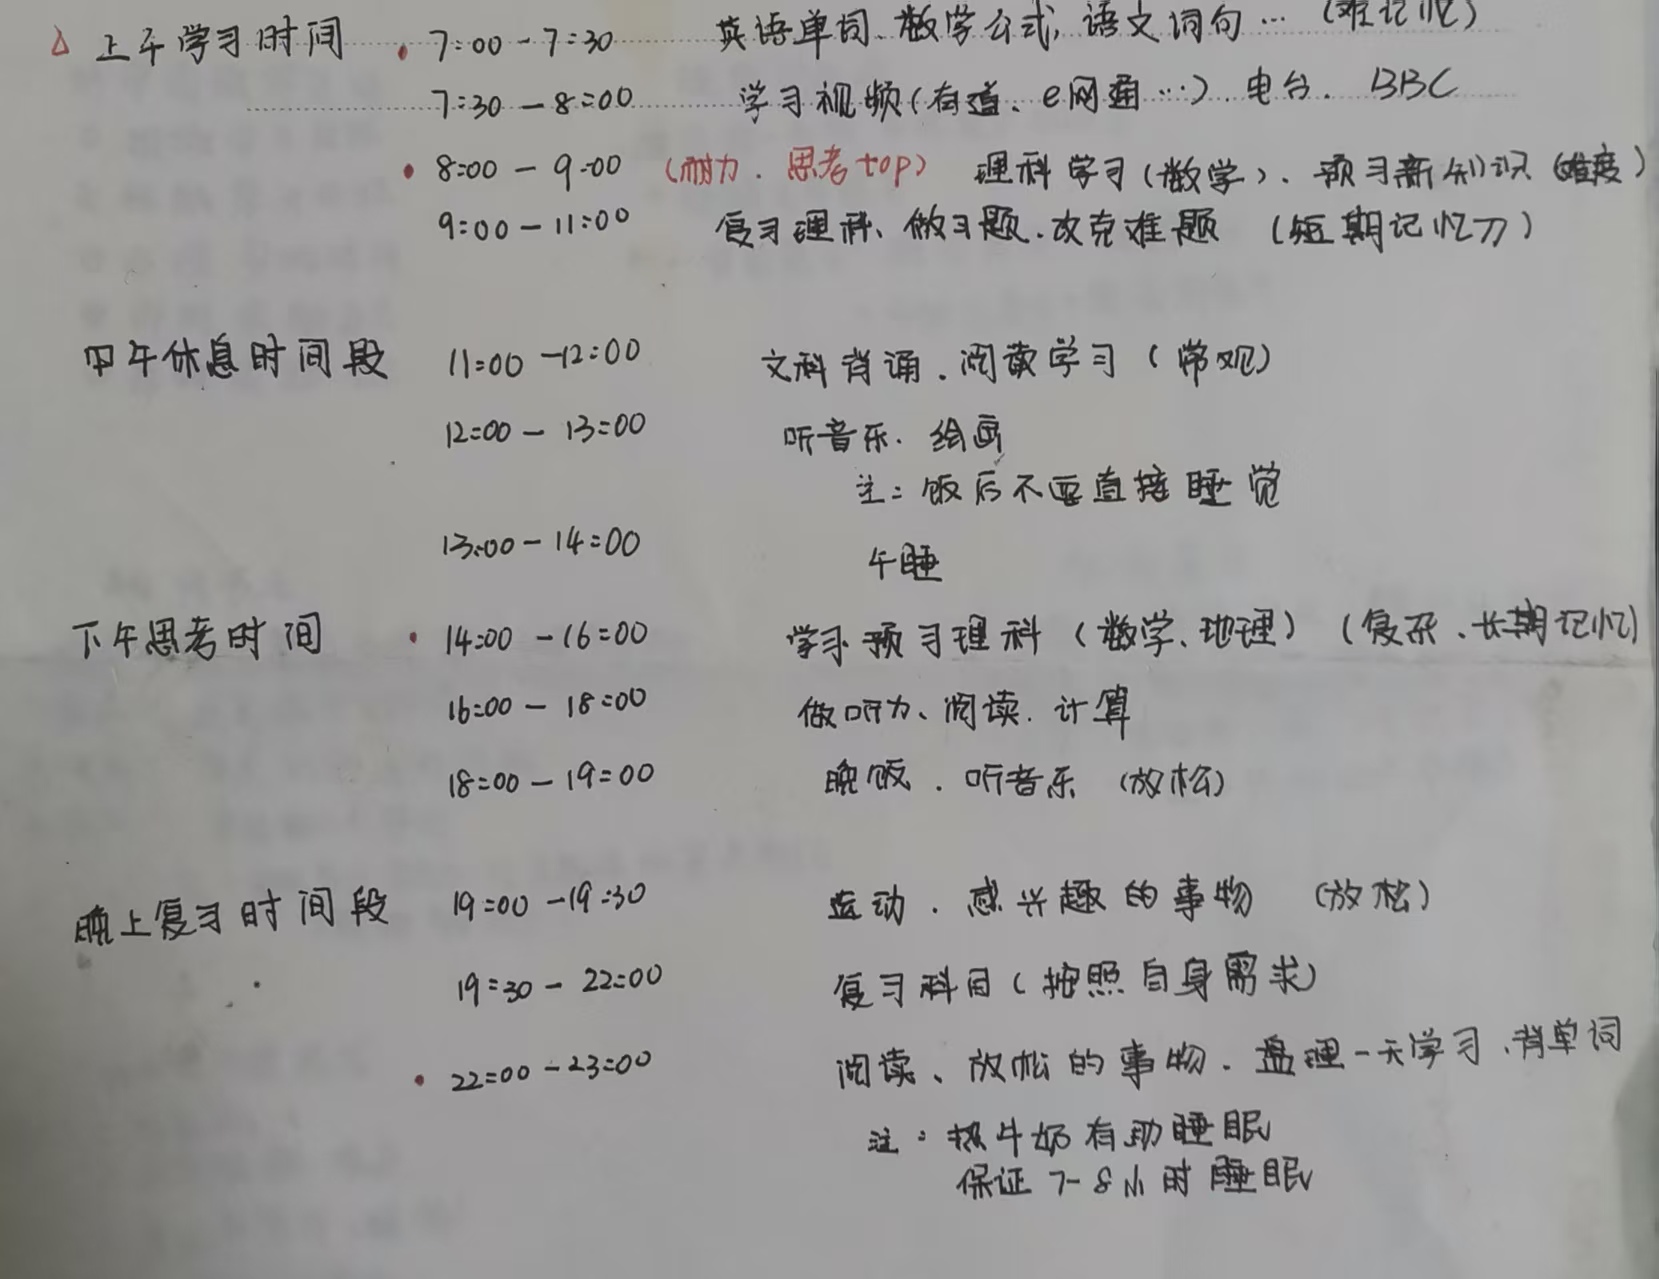 △ 上午学习时间 · 7:00-7:30 英语单词、数学公式,语文词句… (难记忆)
7:30-8:00 学习视频(有道、e网通…)、电台. BBC
· 8:00-9:00 (耐力.思考top) 理科学习(数学)、预习新知识(难度)
9:00-11:00 复习理科、做习题.攻克难题 (短期记忆力)
中午休息时间段 11:00-12:00 文科背诵.阅读学习(常观)
12:00-13:00 听音乐.绘画
注:饭后不要直接睡觉
13:00-14:00 午睡
下午思考时间 · 14:00-16:00 学习预习理科(数学、地理) (复杂、长期记忆)
16:00-18:00 做听力、阅读.计算
18:00-19:00 晚饭.听音乐 (放松)
晚上复习时间段 19:00-19:30 运动.感兴趣的事物 (放松)
19:30-22:00 复习科目(按照自身需求)
· 22:00-23:00 阅读、放松的事物.整理一天学习、背单词
注:热牛奶有助睡眠
保证7-8小时睡眠